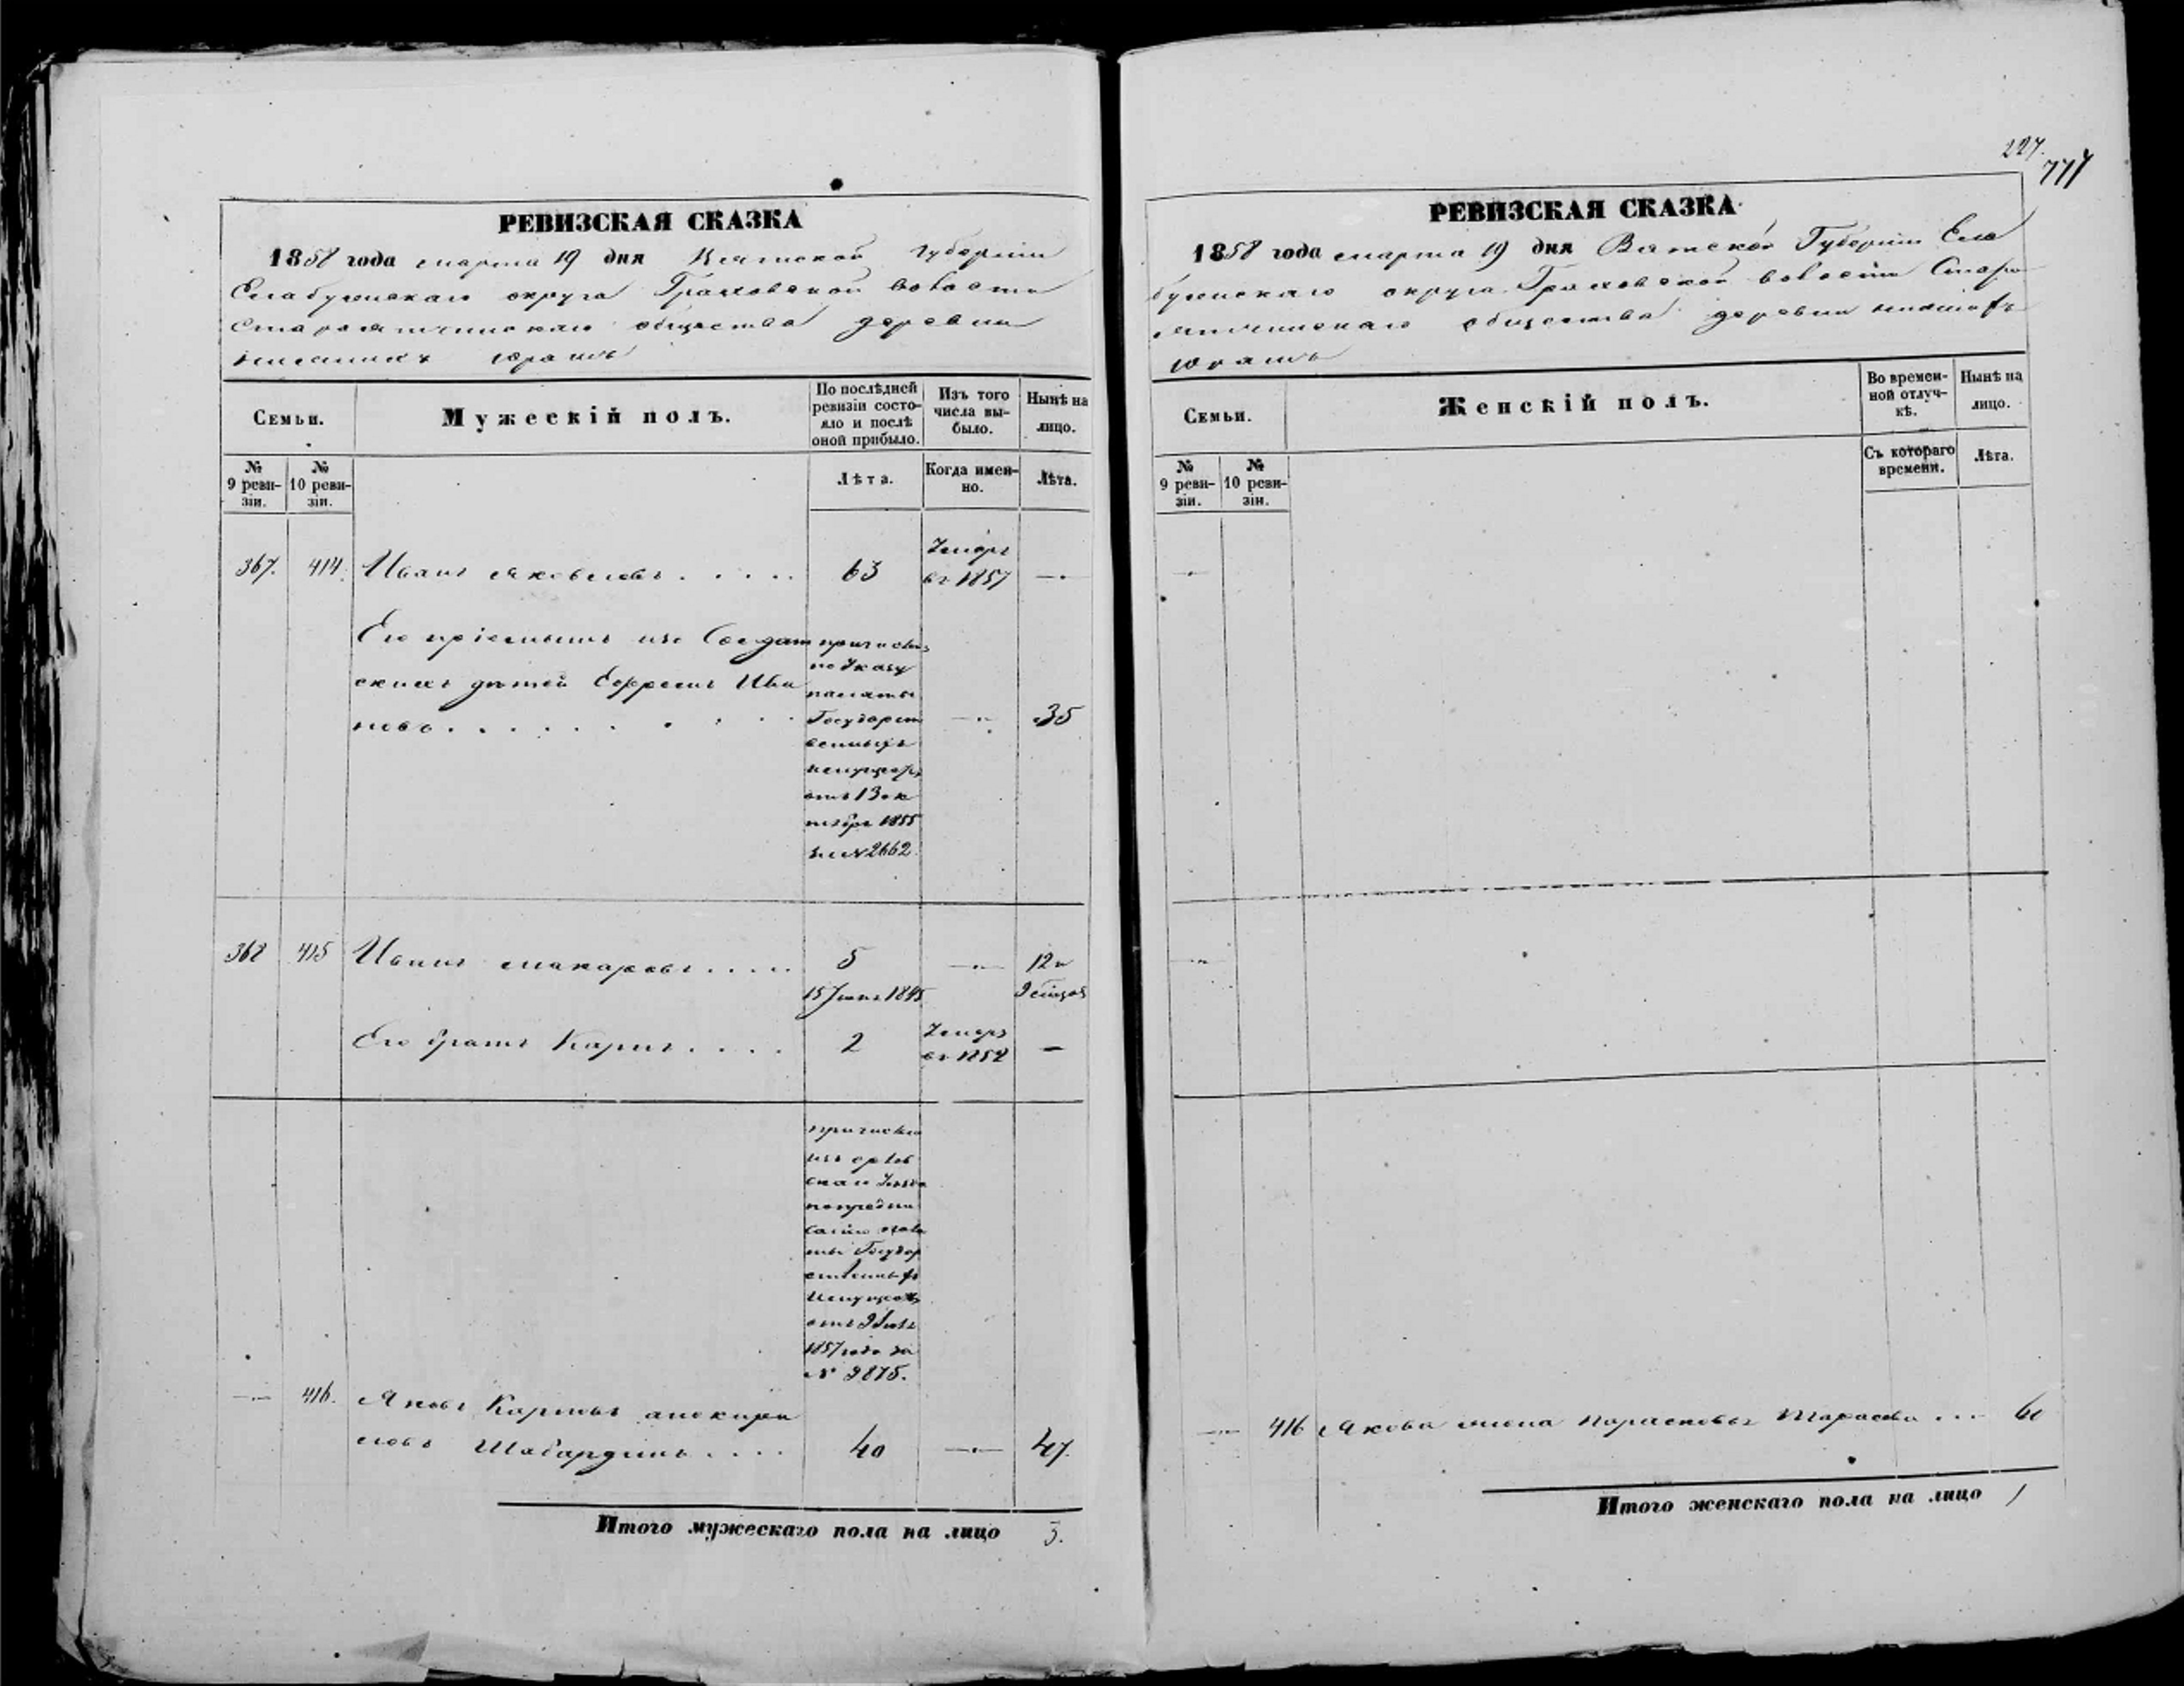 РЕВИЗСКАЯ СКАЗКА
1858 года марта 19 дня Вятской губернии
Елабужскаго округа Граховской волости
Старо общества деревни
нижнихъ Юрашъ
Семьи.
Мужескій полъ.
По послѣдней ревизіи состояло и послѣ оной прибыло.
Изъ того числа выбыло.
Нынѣ на лицо.
№ 9 ревизіи.
№ 10 ревизіи.
Лѣта.
Когда именно.
Лѣта.
367. 414. Иванъ Яковлевъ . . . . . 63 Умеръ въ 1857 —
Его пріемышъ изъ Солдат
скихъ дѣтей Ефремъ Ива
новъ . . . . . . . . — 35
причисл
по Указу
палаты
Государст
венныхъ
имуществъ
отъ 13 ок
тября 1855
за № 2662
368 415 Иванъ Макаровъ . . . . . 5 — 12 и
15 1845
Его братъ Карпъ . . . . 2 Умеръ въ 1852 —
причислен
изъ
скаго
по предпи
санію пала
ты Государ
ственныхъ
Имуществъ
отъ
1857 года за
№ 9875.
— 416. Яковъ Карповъ
Шабардинъ . . . . 40 — 47.
Итого мужескаго пола на лицо 3.
227.
777
РЕВИЗСКАЯ СКАЗКА
1858 года марта 19 дня Вятской Губерніи Ела
бужскаго округа Граховской волости Старо
общества деревни нижнихъ
Юрашъ
Семьи.
Женскій полъ.
Во временной отлучкѣ.
Нынѣ на лицо.
№ 9 ревизіи.
№ 10 ревизіи.
Съ котораго времени.
Лѣта.
— 416 Якова жена Парасковья Тарасова . . . 60
Итого женскаго пола на лицо 1